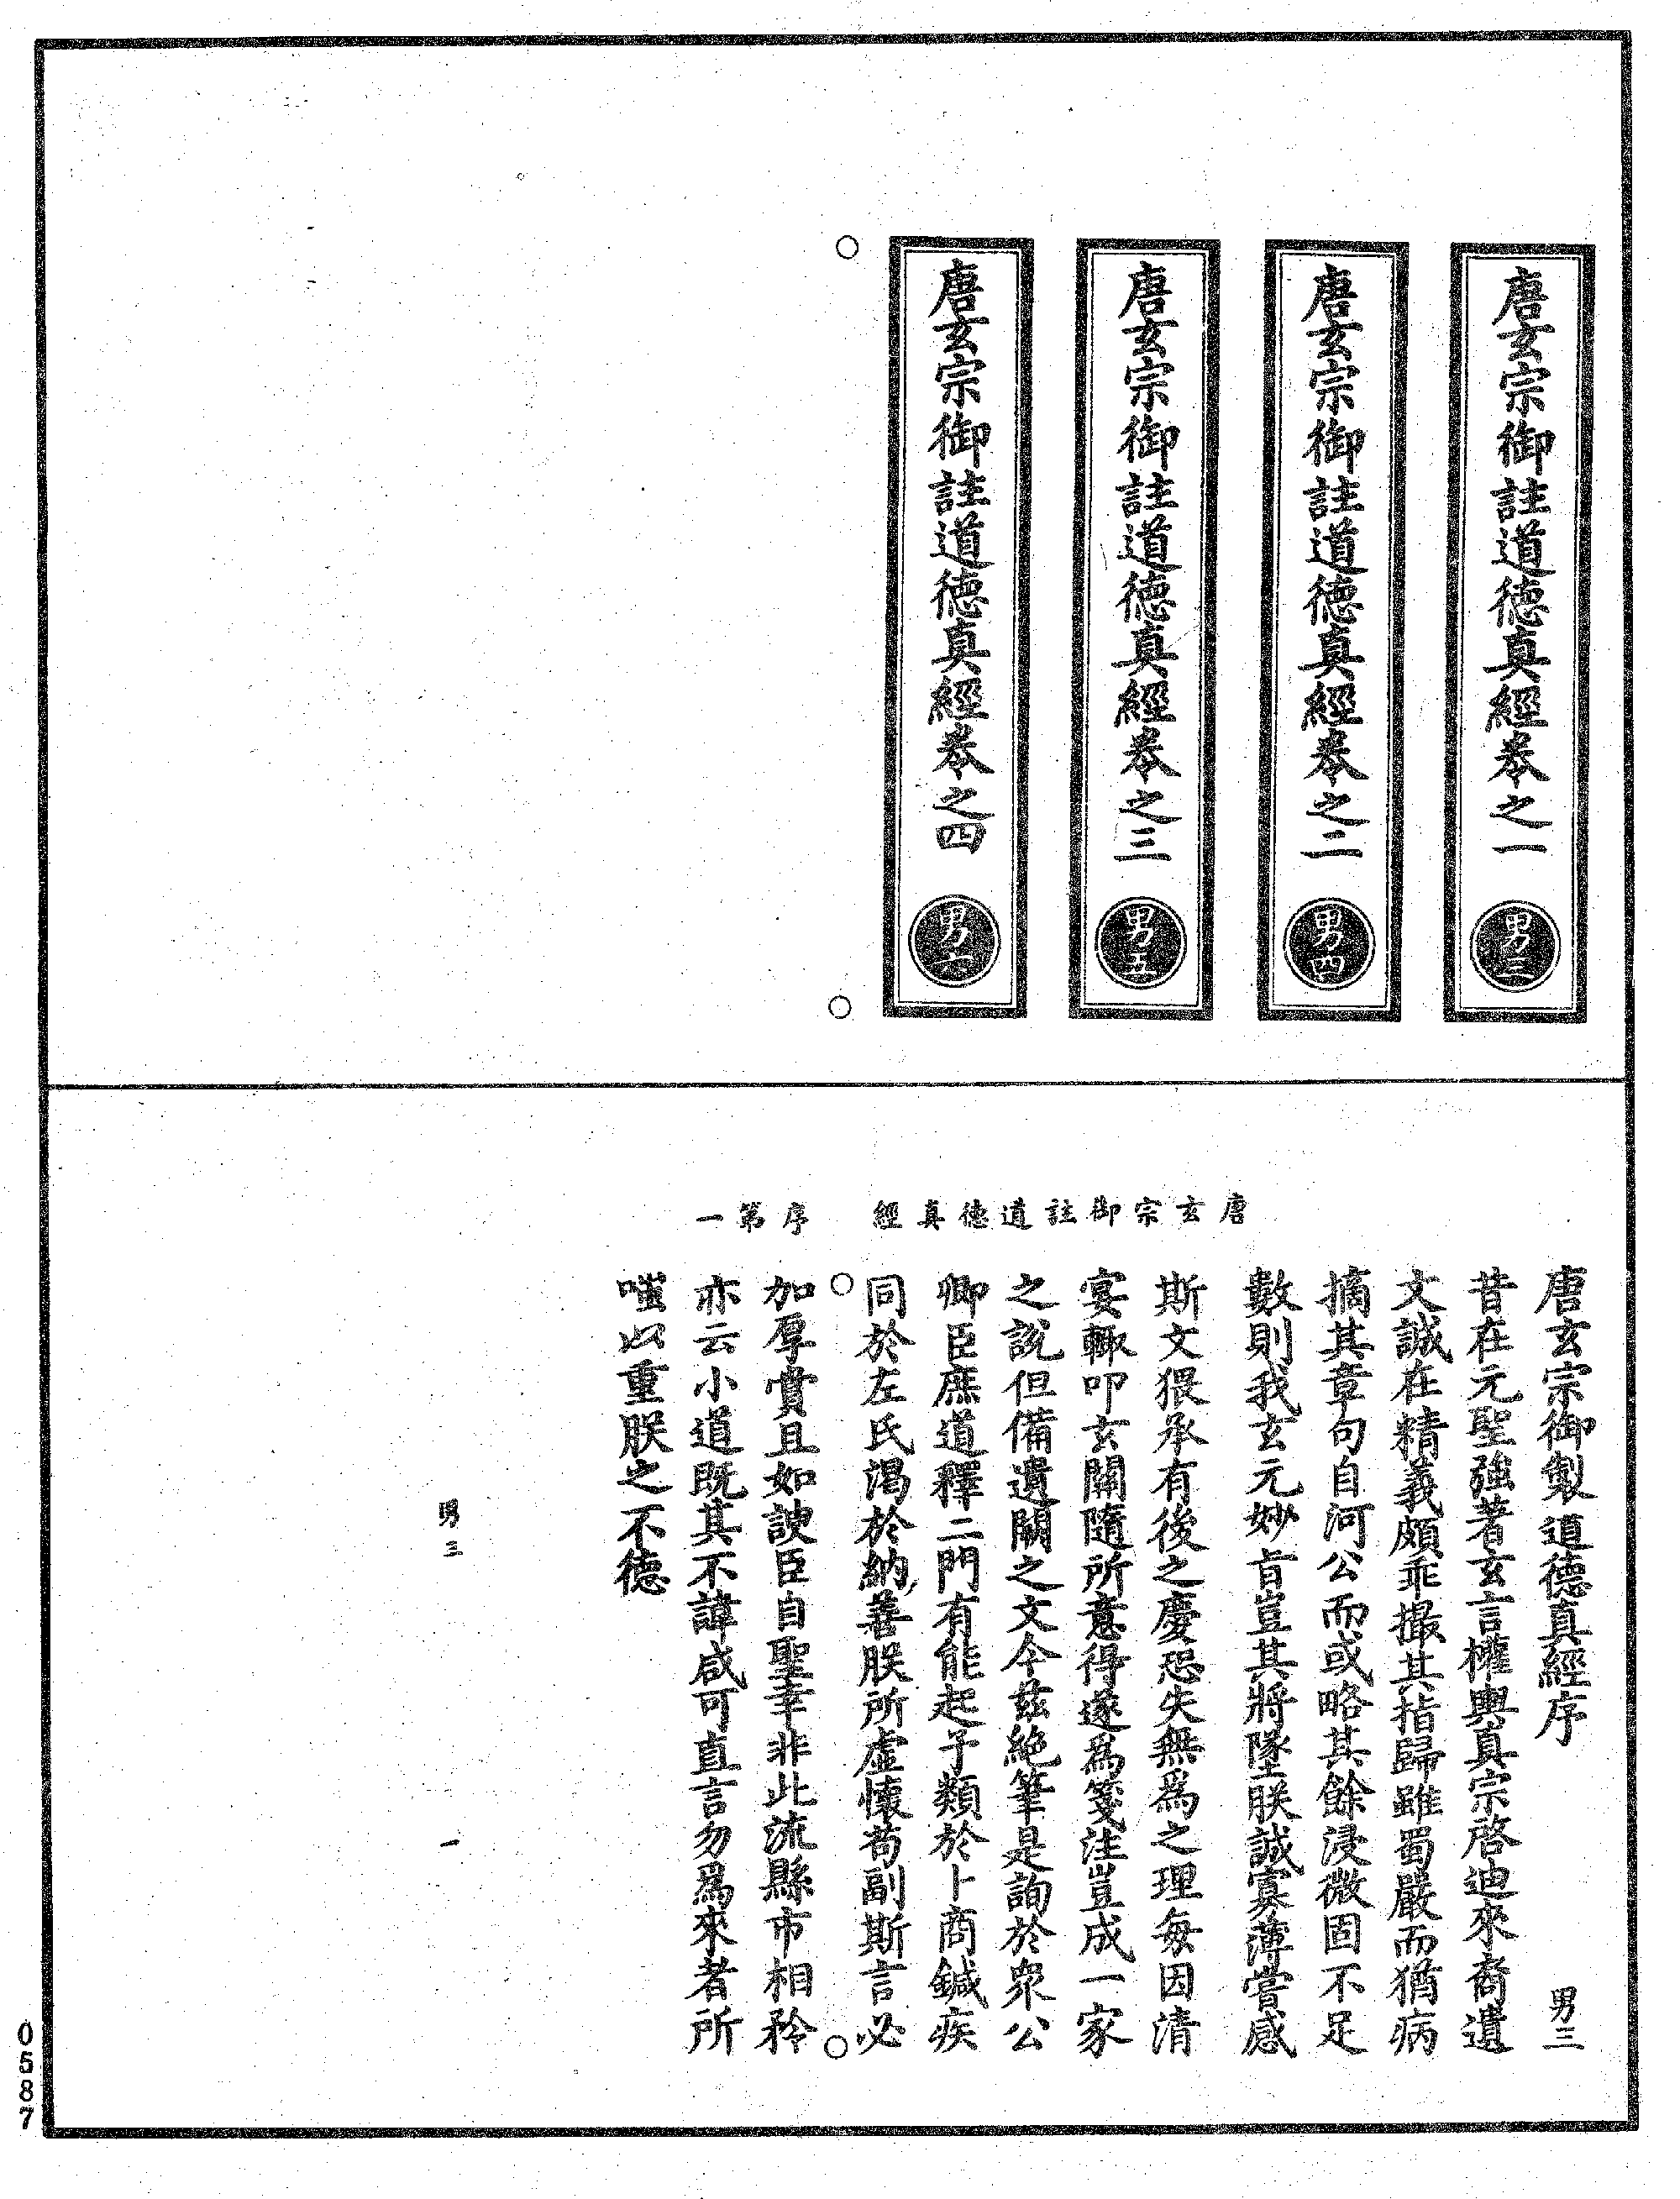 唐玄宗御註道德真經卷之一
男三
唐玄宗御註道德真經卷之二
男四
唐玄宗御註道德真經卷之三
男五
唐玄宗御註道德真經卷之四
男六
唐玄宗御註道德真經　序第一
唐玄宗御製道德真經序
男三
昔在元聖強著玄言權輿真宗啓迪來裔遺
文誠在精義頗乖撮其指歸雖蜀嚴而猶病
摘其章句自河公而或略其餘浸微固不足
數則我玄元妙旨豈其將墜朕誠寡薄嘗感
斯文猥承有後之慶恐失無爲之理每因清
宴輙叩玄關隨所意得遂爲箋注豈成一家
之說但備遺闕之文今兹絕筆是詢於衆公
卿臣庶道釋二門有能起予類於卜商鍼疾
同於左氏渴於納善朕所虛懷苟副斯言必
加厚賞且如諛臣自聖幸非此流縣市相矜
亦云小道既其不諱咸可直言勿爲來者所
嗤以重朕之不德
男三
一
0587